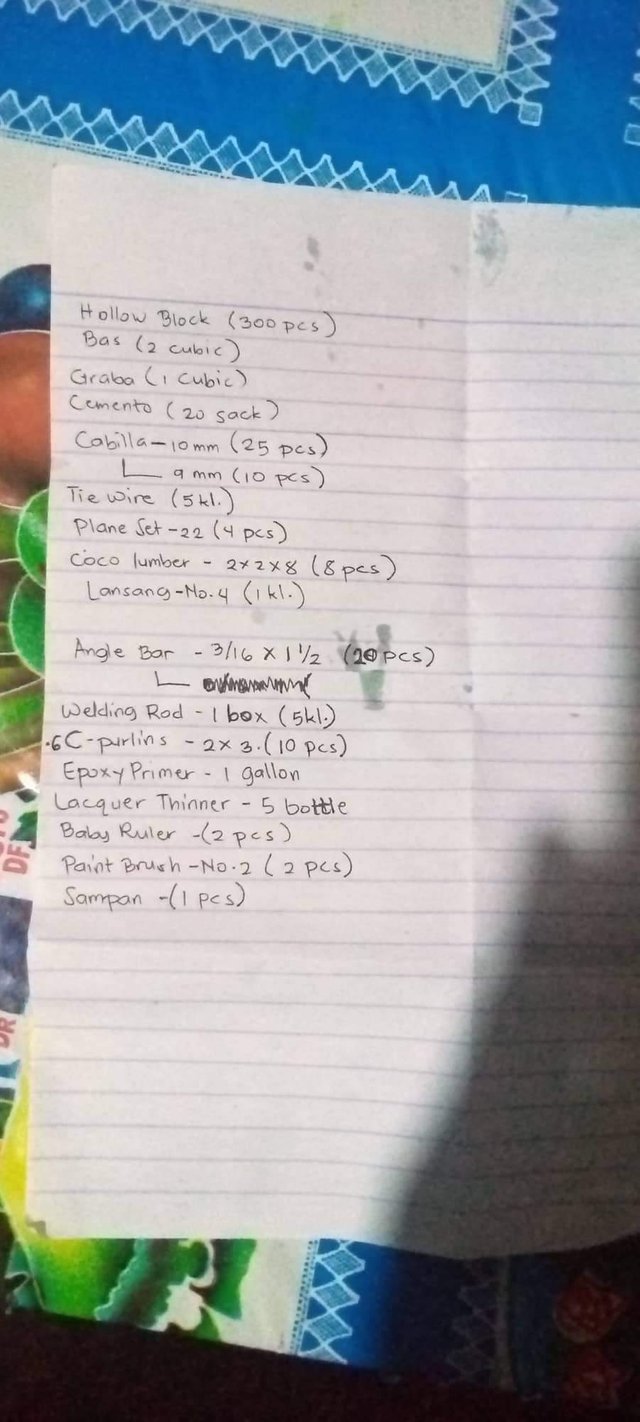 Hollow Block (300 pcs)
Bas (2 cubic)
Graba (1 cubic)
Cemento (20 sack)
Cabilla - 10 mm (25 pcs)
9 mm (10 pcs)
Tie wire (5 kl.)
Plane Set - 22 (4 pcs)
Coco lumber - 2x2x8 (8 pcs)
Lansang - No. 4 (1 kl.)
Angle Bar - 3/16 x 1 1/2 (20 pcs)
Welding Rod - 1 box (5kl.)
.6 C-purlins - 2x3. (10 pcs)
Epoxy Primer - 1 gallon
Lacquer Thinner - 5 bottle
Baby Ruler - (2 pcs)
Paint Brush - No. 2 (2 pcs)
Sampan - (1 pcs)
DF
DR